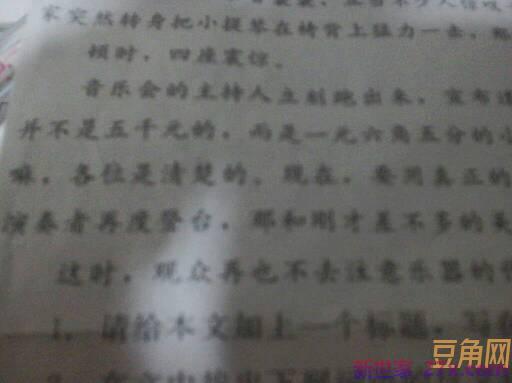 家突然转身把小提琴在椅背上猛力一击，
顿时，四座震惊。
音乐会的主持人立刻跑出来，宣布
并不是五千元的，而是一元六角五分的小
嘛，各位是清楚的。现在，要用真正的
演奏者再度登台，那和刚才差不多的美
这时，观众再也不去注意乐器的
1．请给本文加上一个标题，写
豆角网
新世家